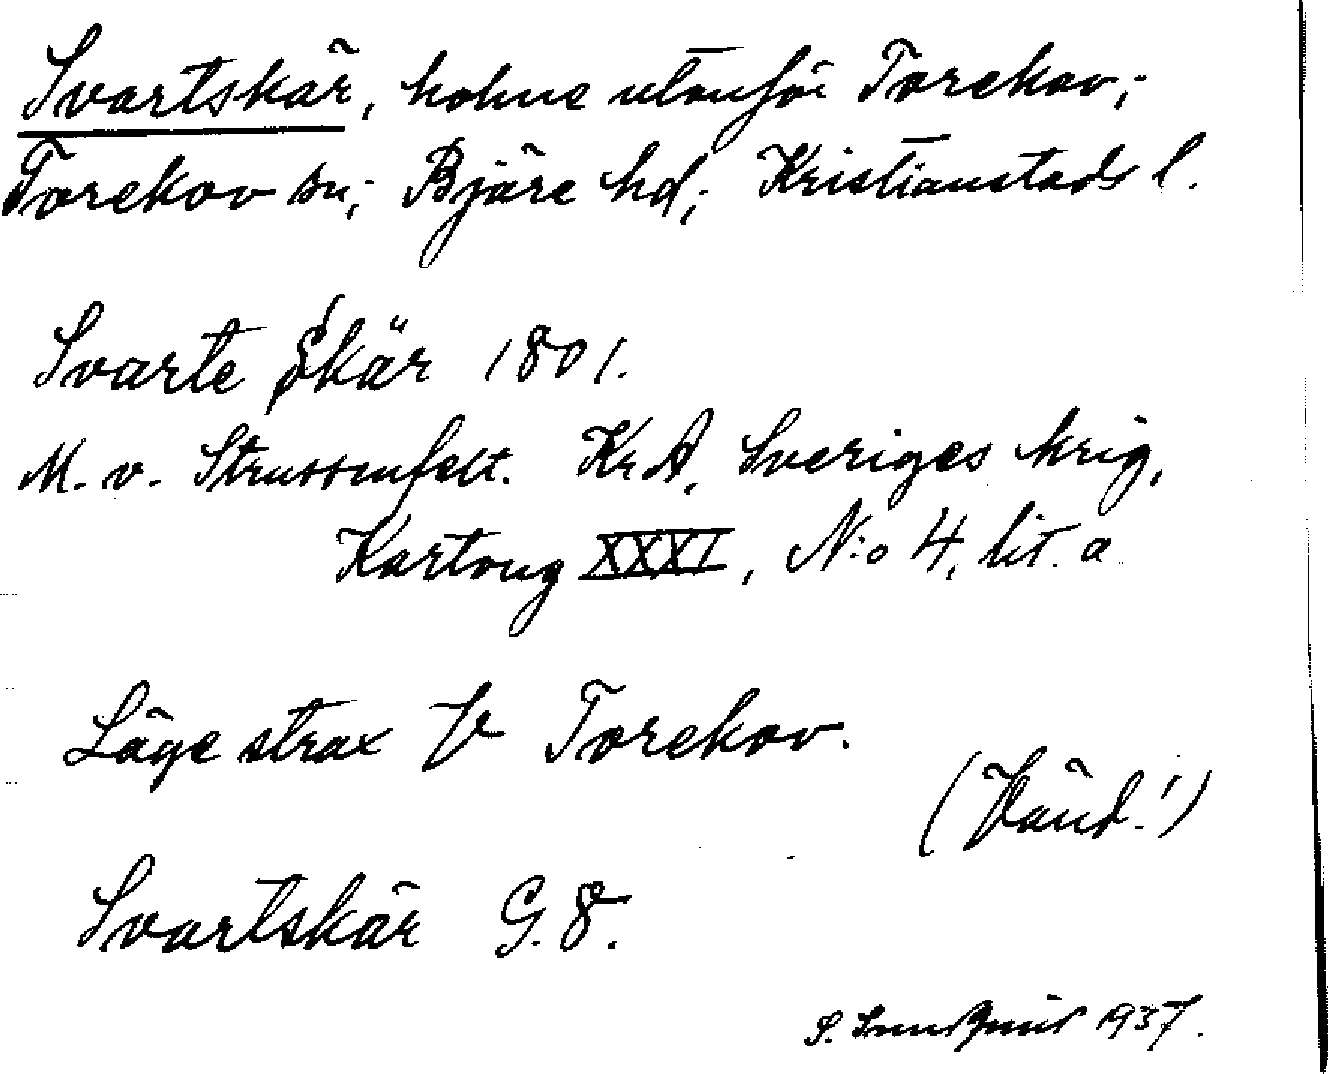 Svartskär, holme utanför Torekov;
Torekov sn; Bjäre hd; Kristianstads l.
Svarte Skär 1801.
M. v. Strussenfelt. KrA, Sveriges krig,
Kartong XXXI, N:o 4, lit. a
Läge strax V Torekov.
(Vänd!)
Svartskär G. 8.
S. 1937.